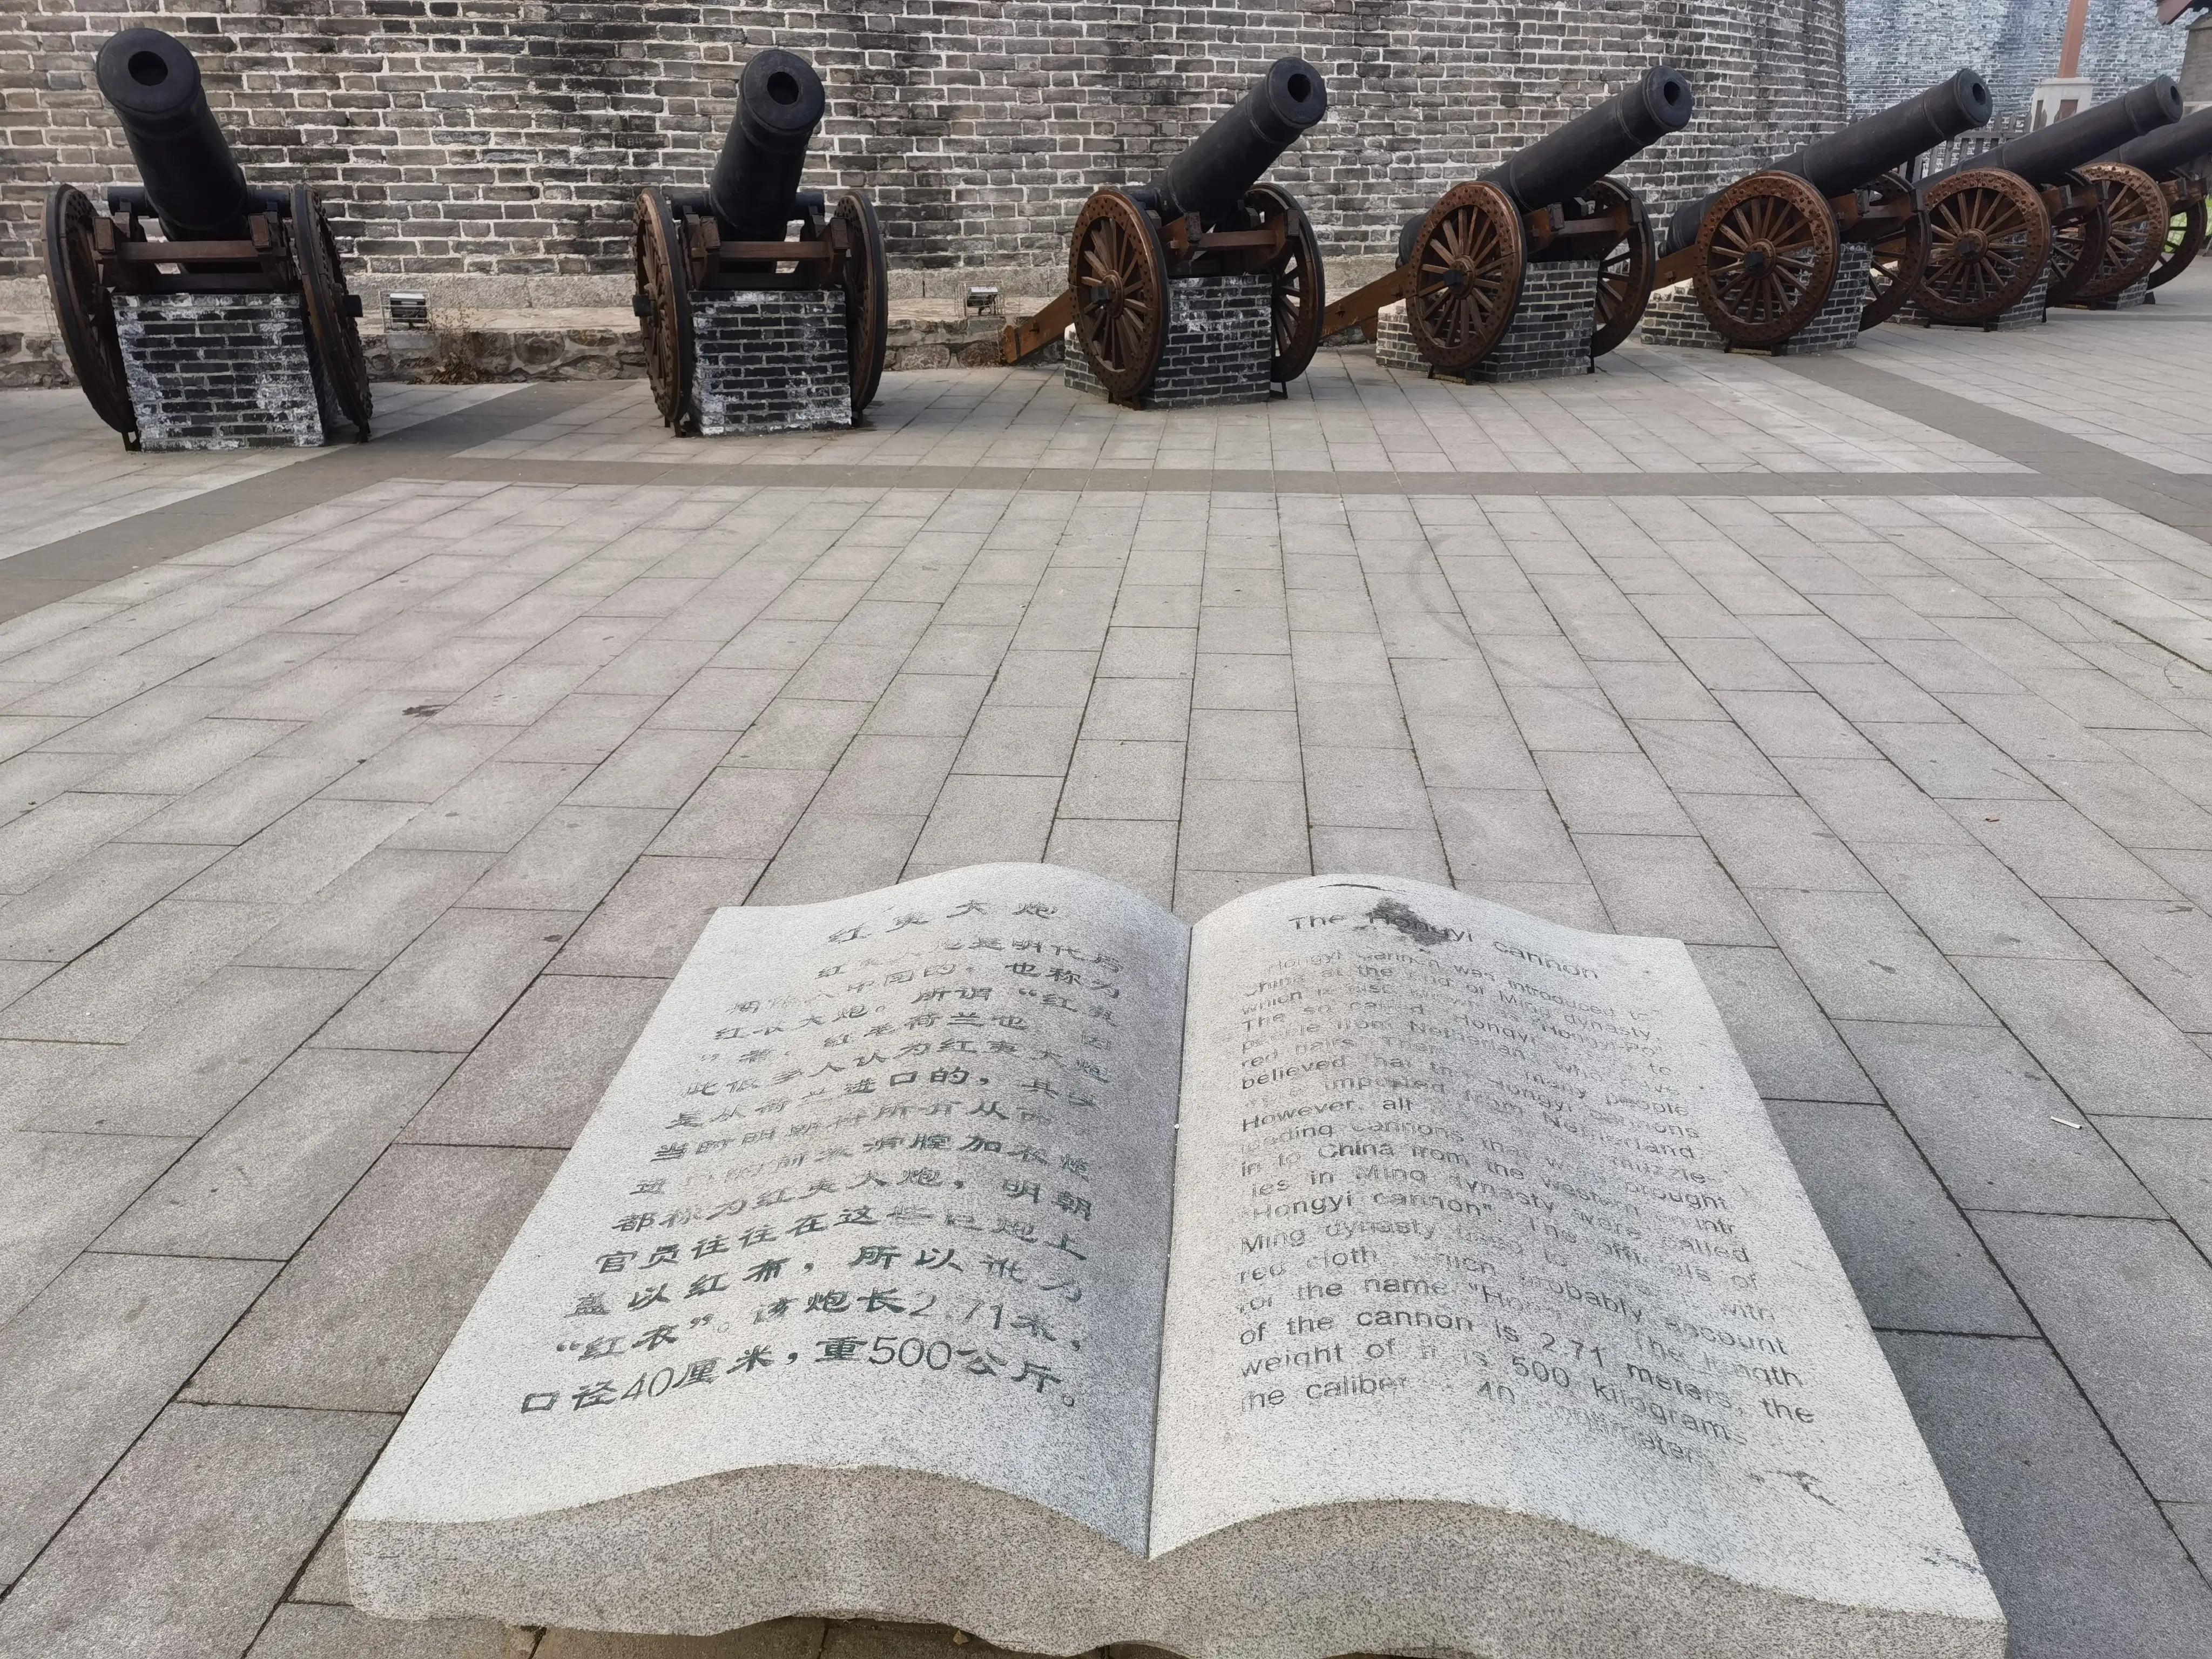 红夷大炮
红夷大炮是明代后
期传入中国的，也称为
红衣大炮。所谓“红夷
”者，红毛荷兰也，因
此很多人认为红夷大炮
是从荷兰进口的，其实
当时明朝将所有从西方
进口的前装滑膛加农炮
都称为红夷大炮，明朝
官员往往在这些巨炮上
盖以红布，所以讹为
“红衣”。该炮长2.71米，
口径40厘米，重500公斤。
The Hongyi cannon
Hongyi Cannon was introduced to
China at the end of Ming dynasty
which is also known as "Hongyi-Po".
The so called "Hongyi" to
people from who have
red hairs. Then many people
believed that the Hongyi cannons
imported from Netherland.
However, all muzzle-
loading cannons that were brought
in to China from the western
ies in Ming dynasty were called
"Hongyi cannon". The officials of
Ming dynasty used to with
red cloth, which probably account
for the name The length
of the cannon is 2.71 meters, the
weight of it is 500 kilograms
he caliber 40